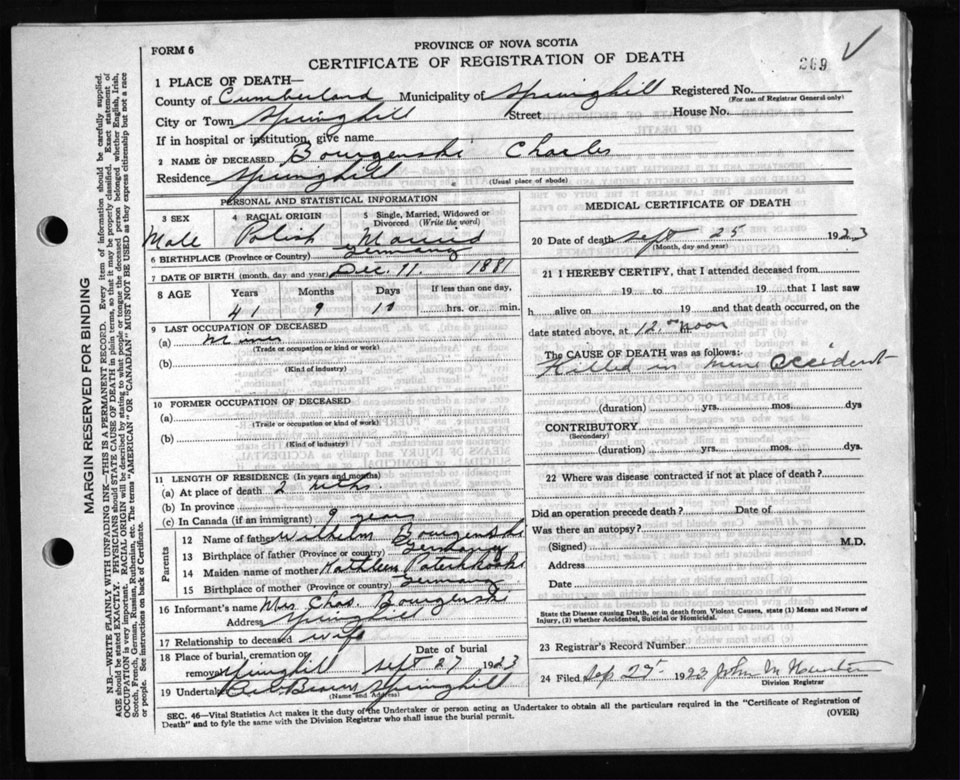 FORM 6
PROVINCE OF NOVA SCOTIA
CERTIFICATE OF REGISTRATION OF DEATH
269
1 PLACE OF DEATH—
County of Cumberland Municipality of Springhill Registered No.
(For use of Registrar General only)
City or Town Springhill Street House No.
If in hospital or institution, give name
2 NAME OF DECEASED Bourgenski Charles
Residence Springhill
(Usual place of abode)
PERSONAL AND STATISTICAL INFORMATION
3 SEX 4 RACIAL ORIGIN 5 Single, Married, Widowed or Divorced (Write the word)
Male Polish Married
6 BIRTHPLACE (Province or Country) Germany
7 DATE OF BIRTH (month, day and year) Dec. 11. 1881
8 AGE Years Months Days If less than one day,
41 9 hrs. or min.
9 LAST OCCUPATION OF DECEASED
(a) Miner
(Trade or occupation or kind or work)
(b)
(Kind of industry)
10 FORMER OCCUPATION OF DECEASED
(a)
(Trade or occupation or kind of work)
(b)
(Kind of industry)
11 LENGTH OF RESIDENCE (In years and months)
(a) At place of death 2 mths.
(b) In province
(c) In Canada (if an immigrant) 9 years
Parents
12 Name of father Wilhelm Bourgenski
13 Birthplace of father (Province or country) Germany
14 Maiden name of mother Kathleen
15 Birthplace of mother (Province or country) Germany
16 Informant's name Mrs Chas. Bourgenski
Address Springhill
17 Relationship to deceased wife
18 Place of burial, cremation or removal Springhill Date of burial Sept 27 1923
19 Undertaker Springhill
(Name and Address)
MEDICAL CERTIFICATE OF DEATH
20 Date of death Sept 25 1923
(Month, day and year)
21 I HEREBY CERTIFY, that I attended deceased from
19 to 19 that I last saw
h alive on 19 and that death occurred, on the
date stated above, at 12. noon
The CAUSE OF DEATH was as follows:
Killed in Mine Accident
(duration) yrs. mos. dys
CONTRIBUTORY
(Secondary)
(duration) yrs. mos. dys.
22 Where was disease contracted if not at place of death?
Did an operation precede death? Date of
Was there an autopsy?
(Signed) M.D.
Address
Date
State the Disease causing Death, or in death from Violent Causes, state (1) Means and Nature of Injury, (2) whether Accidental, Suicidal or Homicidal.
23 Registrar's Record Number
24 Filed Sep. 25 1923 John M
Division Registrar
SEC. 46—Vital Statistics Act makes it the duty of the Undertaker or person acting as Undertaker to obtain all the particulars required in the "Certificate of Registration of
Death" and to fyle the same with the Division Registrar who shall issue the burial permit.
(OVER)
MARGIN RESERVED FOR BINDING
N.B.—WRITE PLAINLY WITH UNFADING INK—THIS IS A PERMANENT RECORD. Every item of information should be carefully supplied.
AGE should be stated EXACTLY. PHYSICIANS should STATE CAUSE OF DEATH in plain terms, so that it may be properly classified. Exact statement of
OCCUPATION is very important. RACIAL ORIGIN will be described by stating to what people or tongue the deceased person belonged whether English, Irish,
Scotch, French, German, Russian, Ruthenian, etc. The terms "AMERICAN" OR "CANADIAN" MUST NOT BE USED as they express citizenship but not a race
or people. See instructions on back of Certificate.